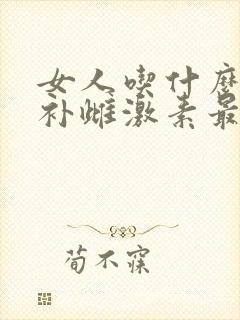 女人喫什麼
补雌激素最
荀不寐